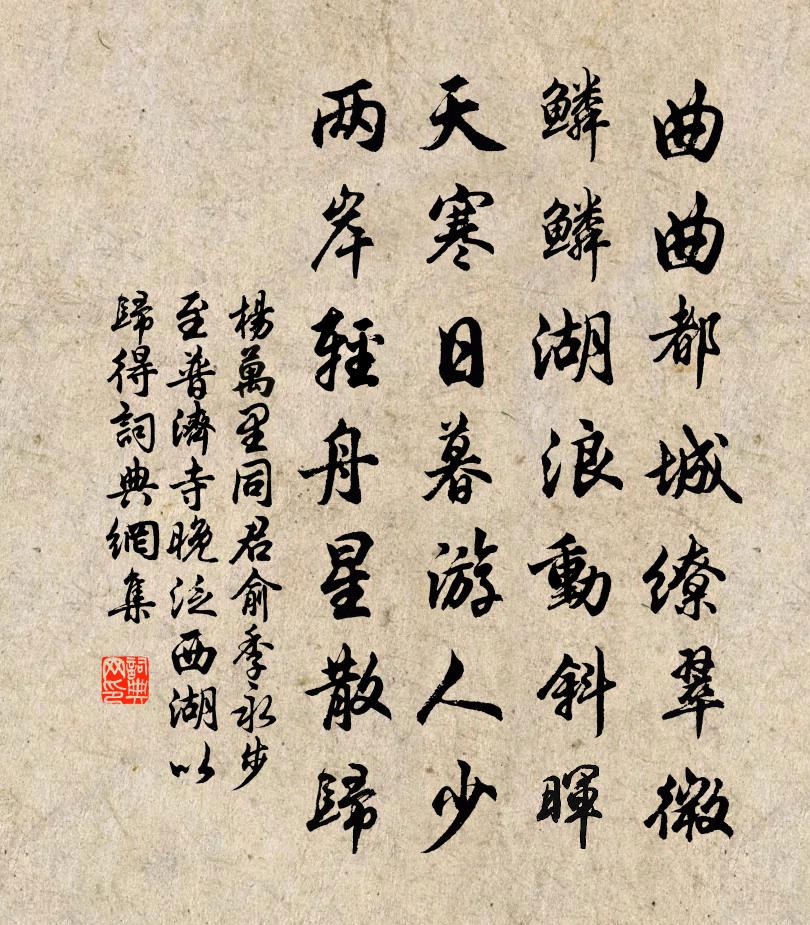 曲曲都城缭翠微
鱗鱗湖浪動斜暉
天寒日暮游人少
两岸輕舟星散歸
楊萬里同君俞季永步
至普濟寺晚泛西湖以
歸得詞典網集
詞典
网印